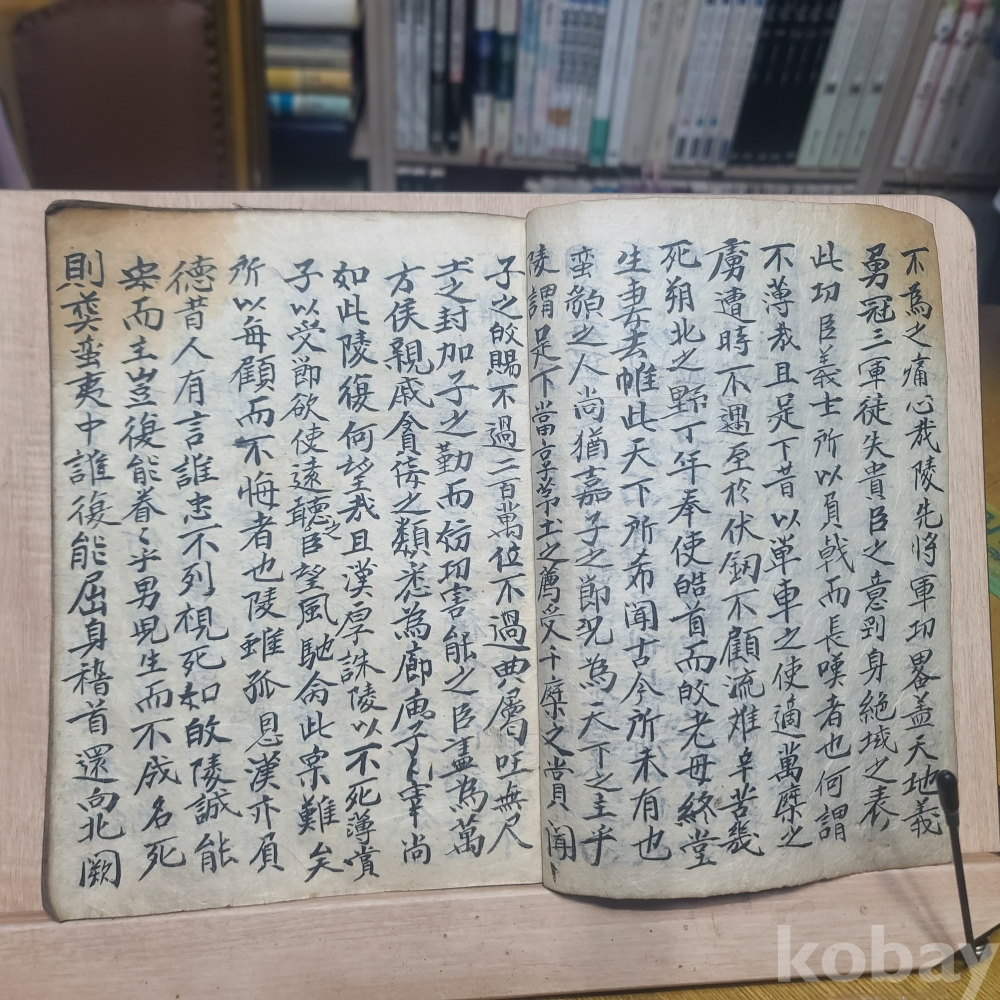 不為之痛心哉陵先將軍功畧盖天地義
勇冠三軍徒失貴臣之意剄身絶域之表
此功臣義士所以負戟而長嘆者也何謂
不薄哉且足下昔以單車之使適萬乗之
虜遭時不遇至於伏釼不顧流难辛苦幾
死朔北之野丁年奉使皓首而皈老母終堂
生妻去帷此天下所希聞古今所未有也
蛮貊之人尚猶嘉子之節况為天下之主乎
陵謂足下當享茅土之薦受千乗之賞聞
子之皈賜不過二百萬位不過典屬吐無尺
土之封加子之勤而妨功害能之臣盡為萬
方侯親戚貪侫之類悉為廊庙子宰尚
如此陵復何望哉且漢厚誅陵以不死薄賞
子以受節欲使遠聽之臣望風馳命此宲難矣
所以每顧而不悔者也陵雖孤恩漢亦負
德昔人有言誰忠不列視死如皈陵誠能
安而主豈復能眷〻乎男児生而不成名死
則葬蛮夷中誰復能屈身稽首還向北闕
kobay